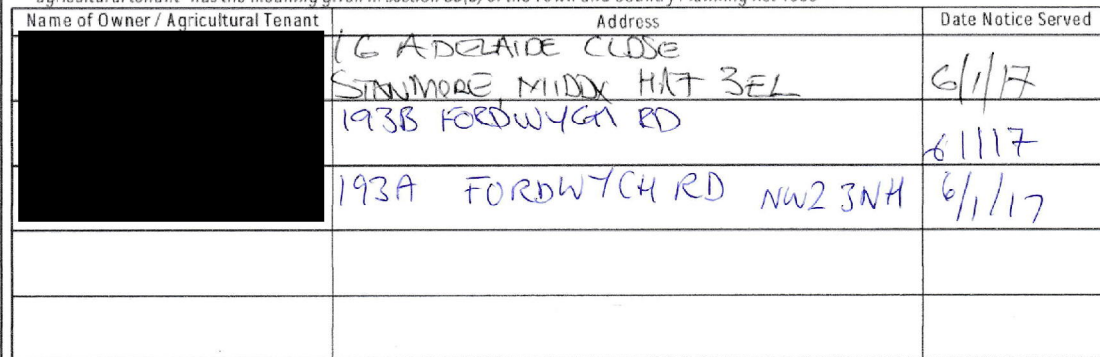 Name of Owner / Agricultural Tenant Address Date Notice Served
16 ADELAIDE CLOSE
STANMORE, MIDDX HA7 3EL 6/1/17
193B FORDWYCH RD
6/1/17
193A FORDWYCH RD NW2 3NH 6/1/17